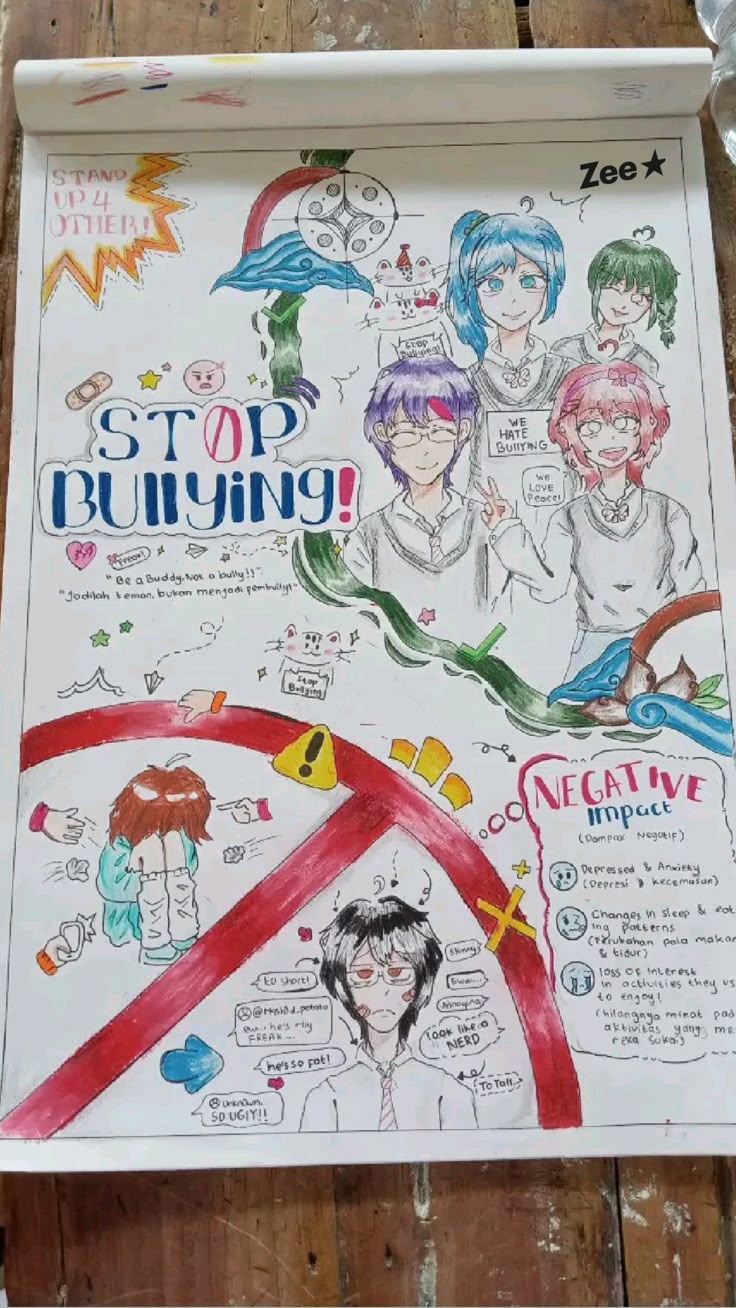 STAND
UP 4
OTHER!
Zee★
Stop
Bullying!
WE
HATE
BUllYING
We
LOVE
Peace!
STOP
BUllYiNg!
Freak!
"Be a Buddy, Not a bully!!"
"Jadilah teman, bukan menjadi pembully!"
Stop
Bullying
NEGATIVE
Impact
(Dampak Negatif)
Depressed & Anxiety
(Depresi & kecemasan)
Changes in sleep & eat
ing patterns
(Perubahan pola makan
& tidur)
loss of interest
in activities they us
to enjoy!
(hilangnya minat pad
aktivitas yang me
reka sukai)
to short!
Skinny
Eww...
Annoying
ew... he's rlly
FREAK...
look like a
NERD
he's so fat!
To Tall..
Unknown.
SO UGIY!!